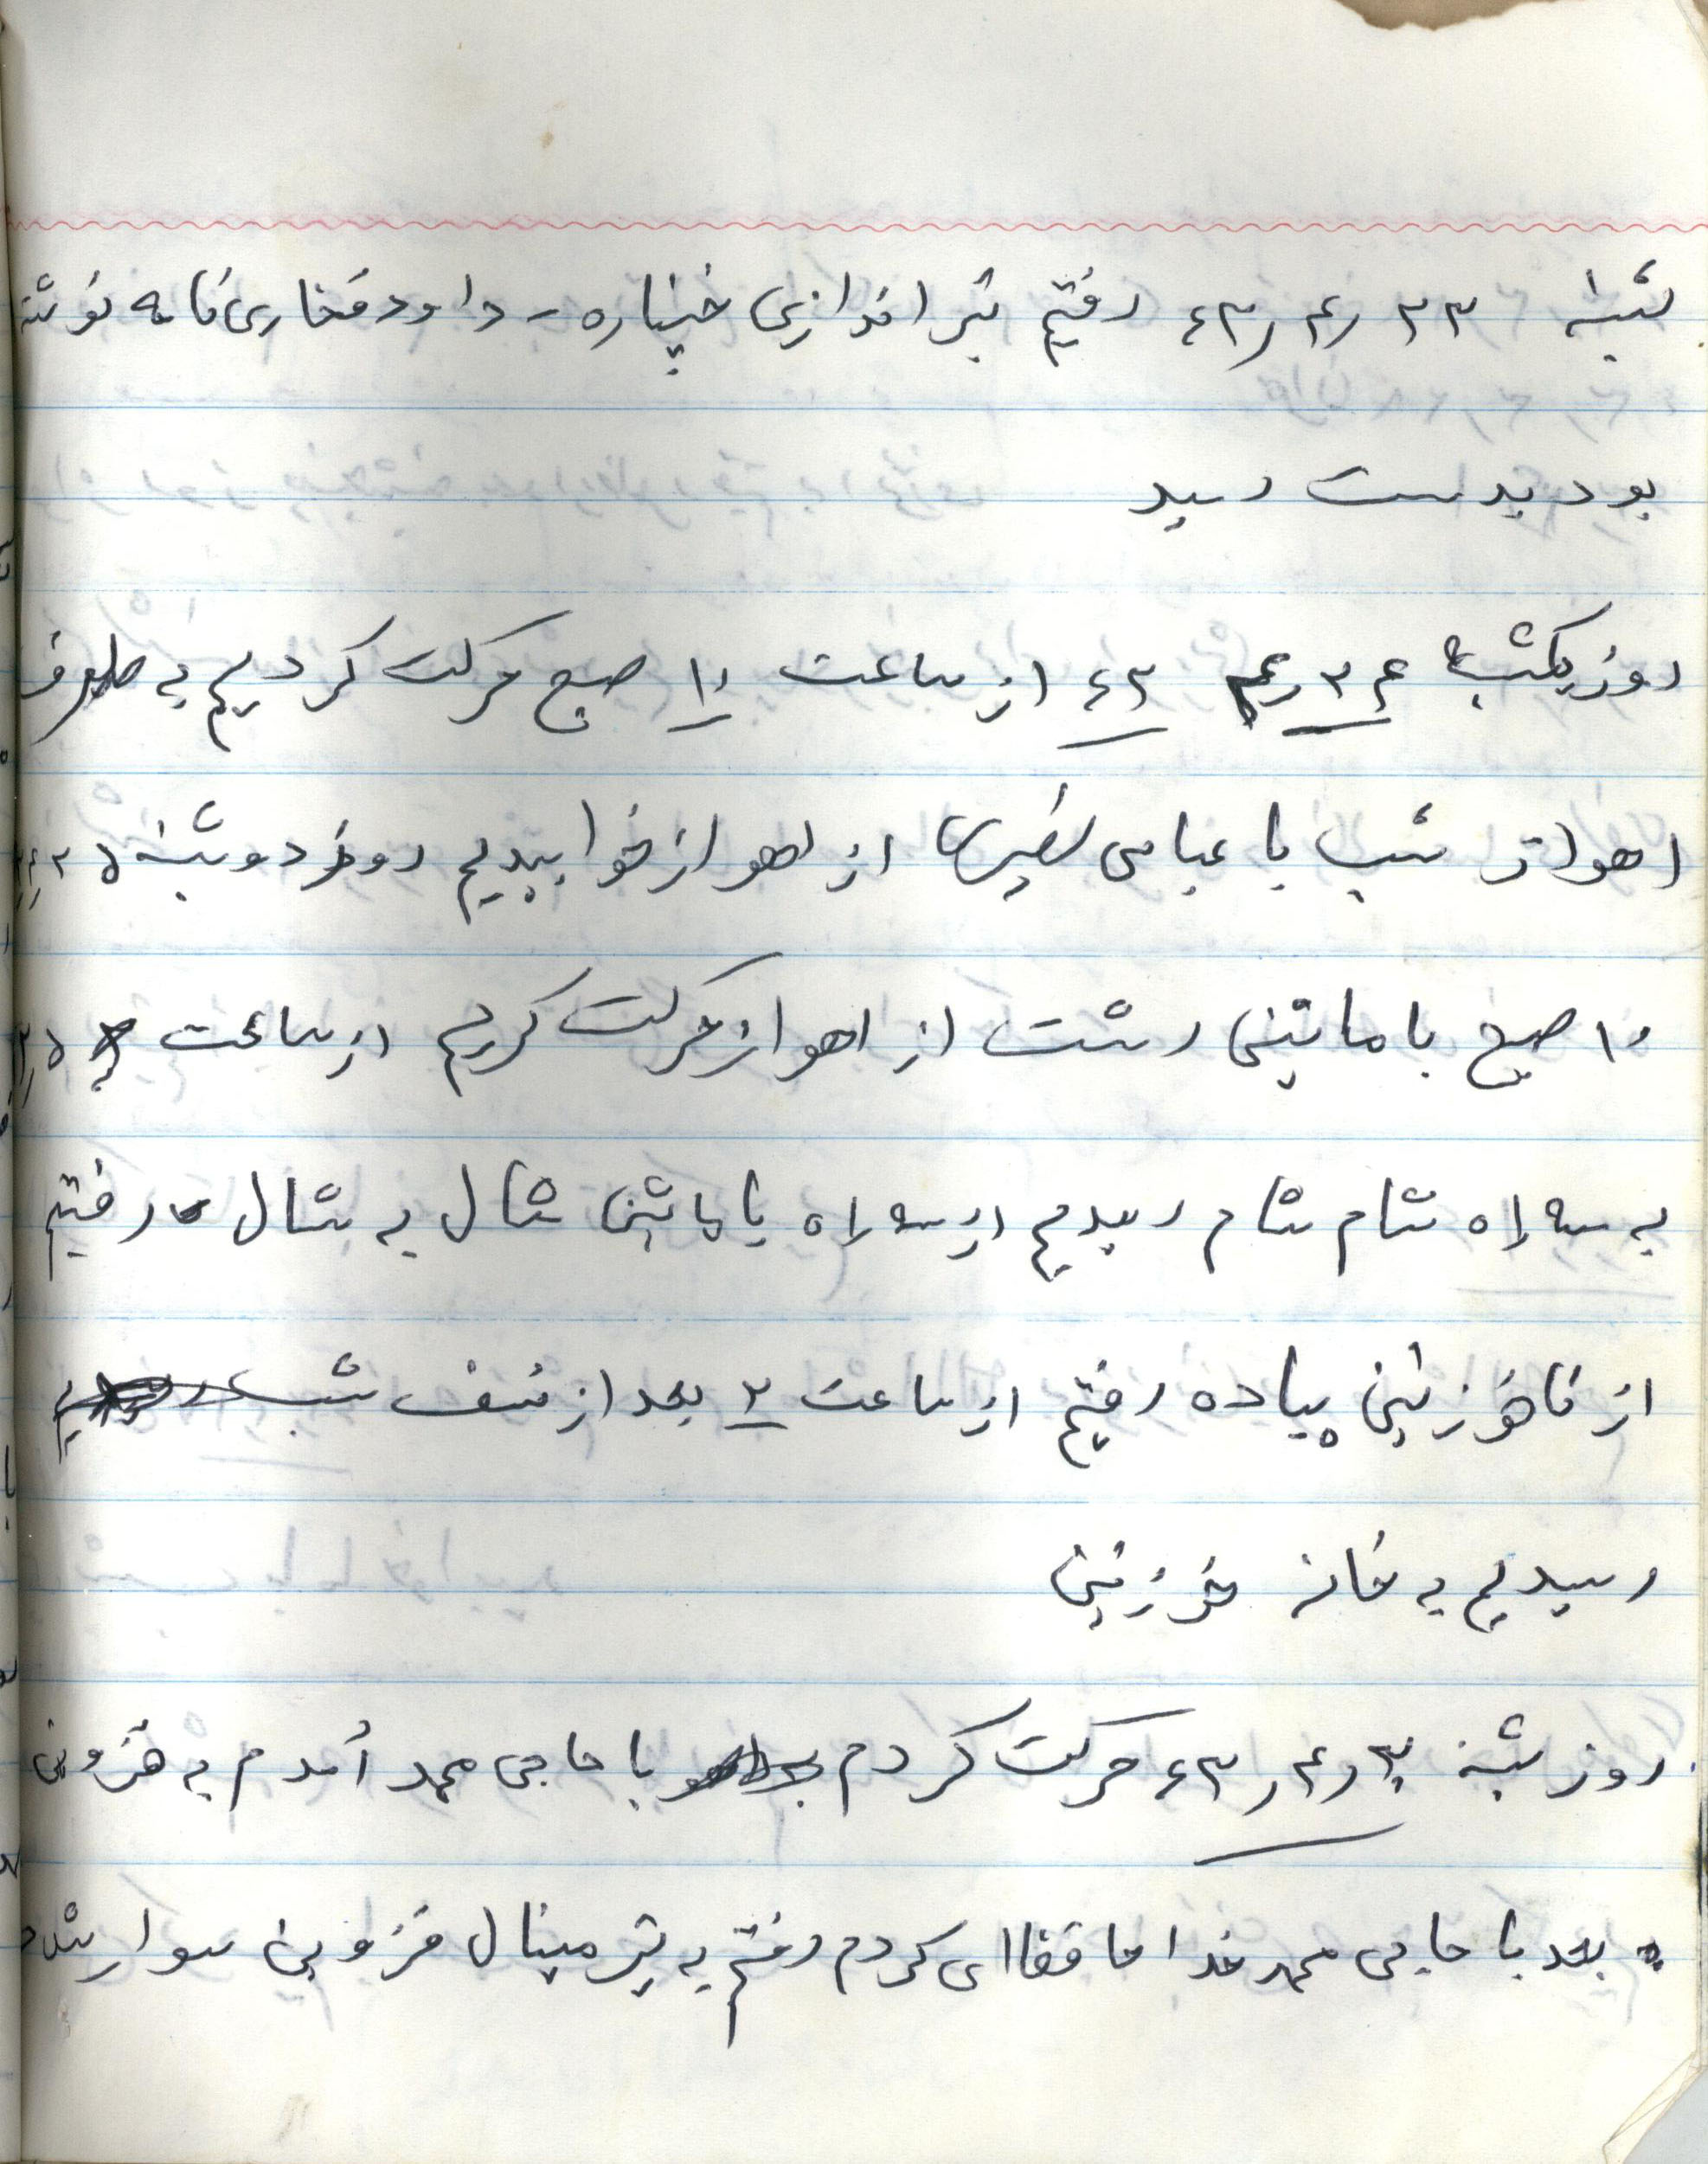 شنبه ۲۳ ر۴ر۶۳ رفتیم تیراندازی خنپاره - داود فخاری نامه نوشته
بود بدست رسید
روز یکشنبه ۲۴ ر۴ ۶۳ از ساعت ۱۰ صبح حرکت کردیم به طرف
اهواز شب با عباس از اهواز خوابیدیم روز دوشنبه ۲۵ر۴
۱۰ صبح با ماشین رشت از اهواز حرکت کردیم از ساعت
به سه راه شام شام رسیدیم از سه راه با ماشین شال به شال رفتیم
از پیاده رفتیم از ساعت ۲ بعد از نصف شب
رسیدیم به خانه خوزنین
روز شنبه ۳۰ر۴ر۶۳ حرکت کردم با حاجی محمد آمدم به قزوین
بعد با حاجی محمد خداحافظی کردم رفتم به تیرمینال قزوین سوار شدم